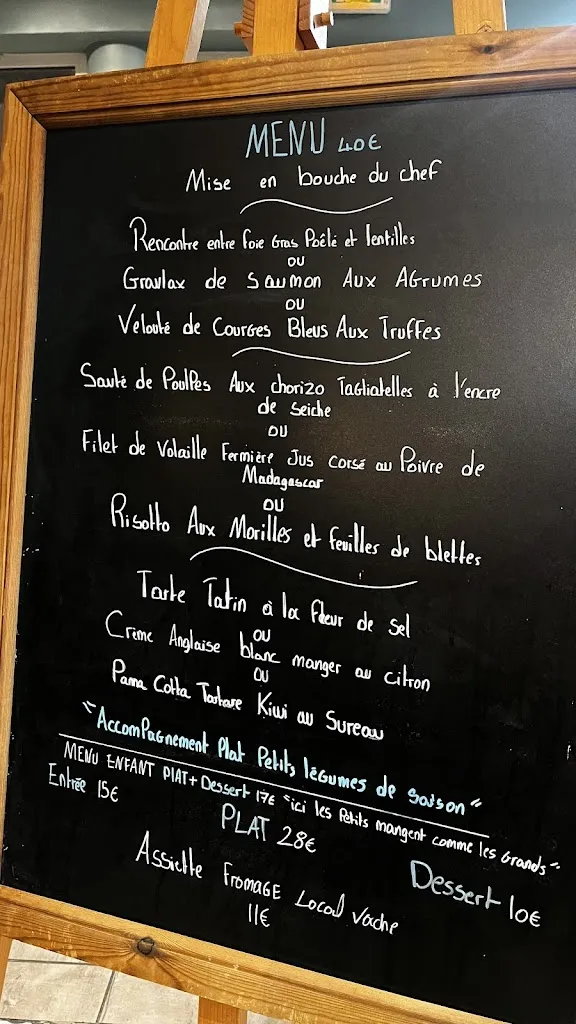 MENU 40€
Mise en bouche du chef
Rencontre entre foie Gras Poêlé et lentilles
ou
Gravlax de Saumon Aux AGrumes
ou
Velouté de Courges Bleus Aux Truffes
Sauté de PoulPes Aux chorizo Tagliatelles à l'encre
de seiche
ou
Filet de Volaille Fermière Jus corsé au Poivre de
Madagascar
ou
Risotto Aux Morilles et feuilles de blettes
Tarte Tatin à la fleur de sel
ou
Crème Anglaise blanc manger au citron
ou
Pana Cotta Tartare Kiwi au Sureau
"AccomPagnement Plat Petits légumes de Saison"
MENU ENFANT PLAT + Dessert 17€ "ici les Petits mangent comme les Grands"
Entrée 15€
PLAT 28€
Dessert 10€
Assiette FROMAGE Local Vache
11€